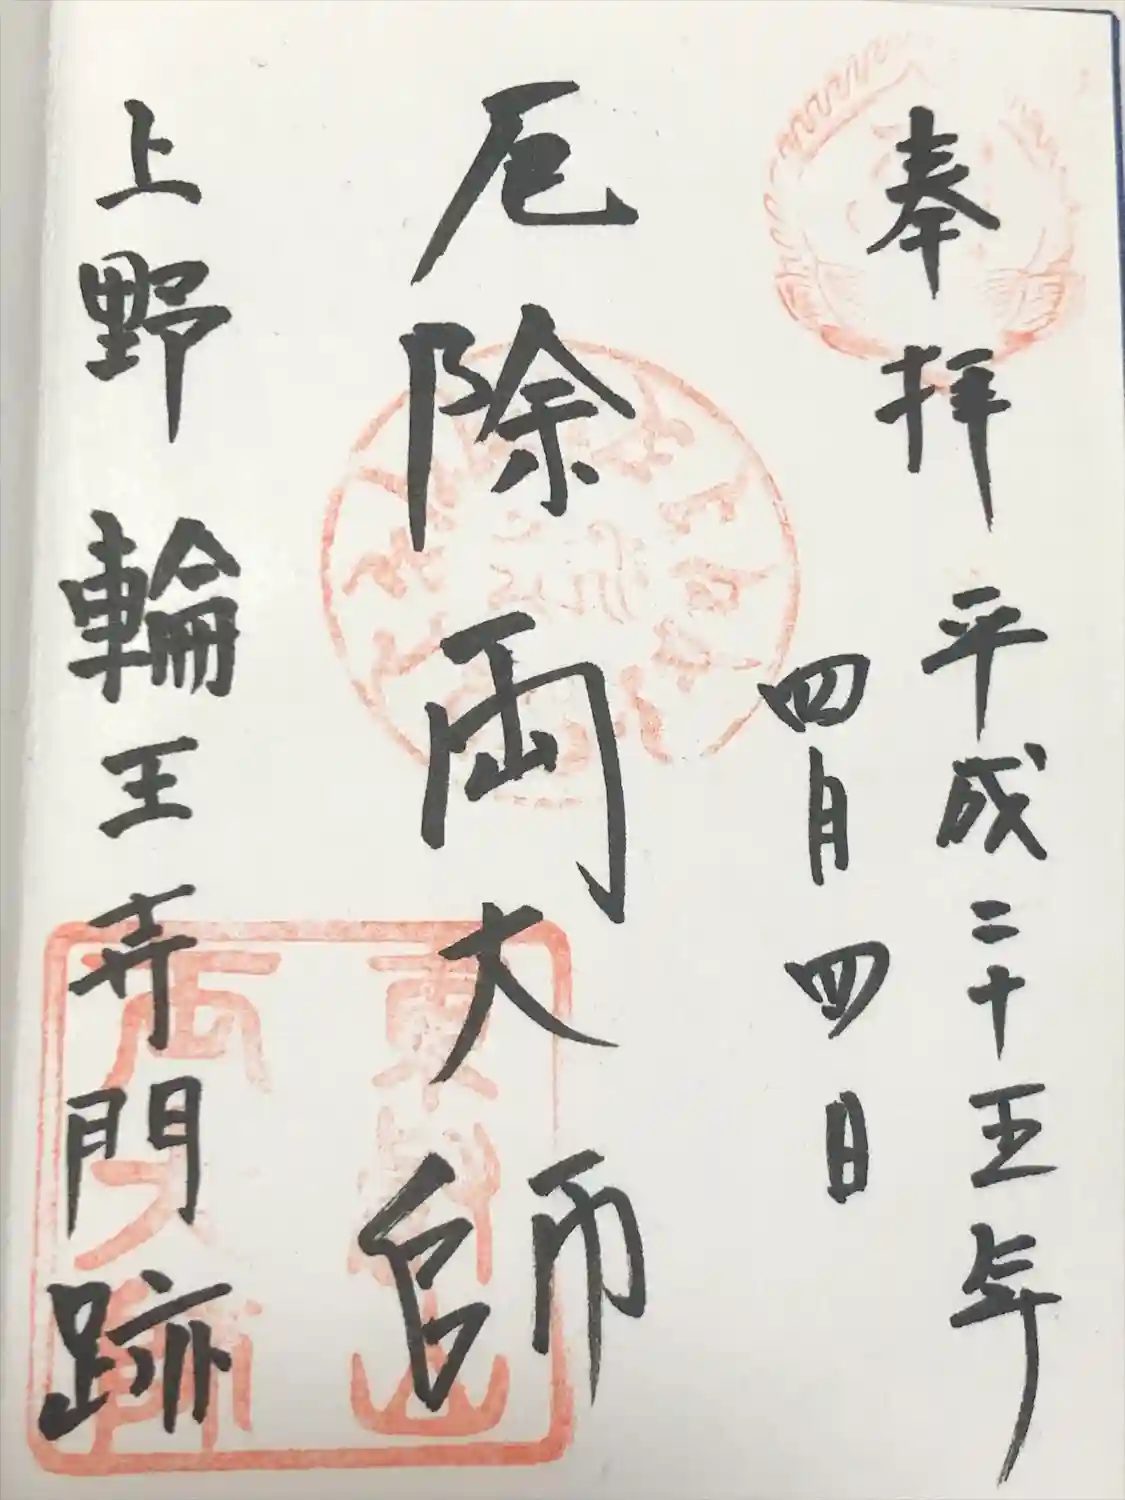 奉拝 平成二十五年
四月四日
厄除両大師
上野輪王寺門跡
東叡山両大師